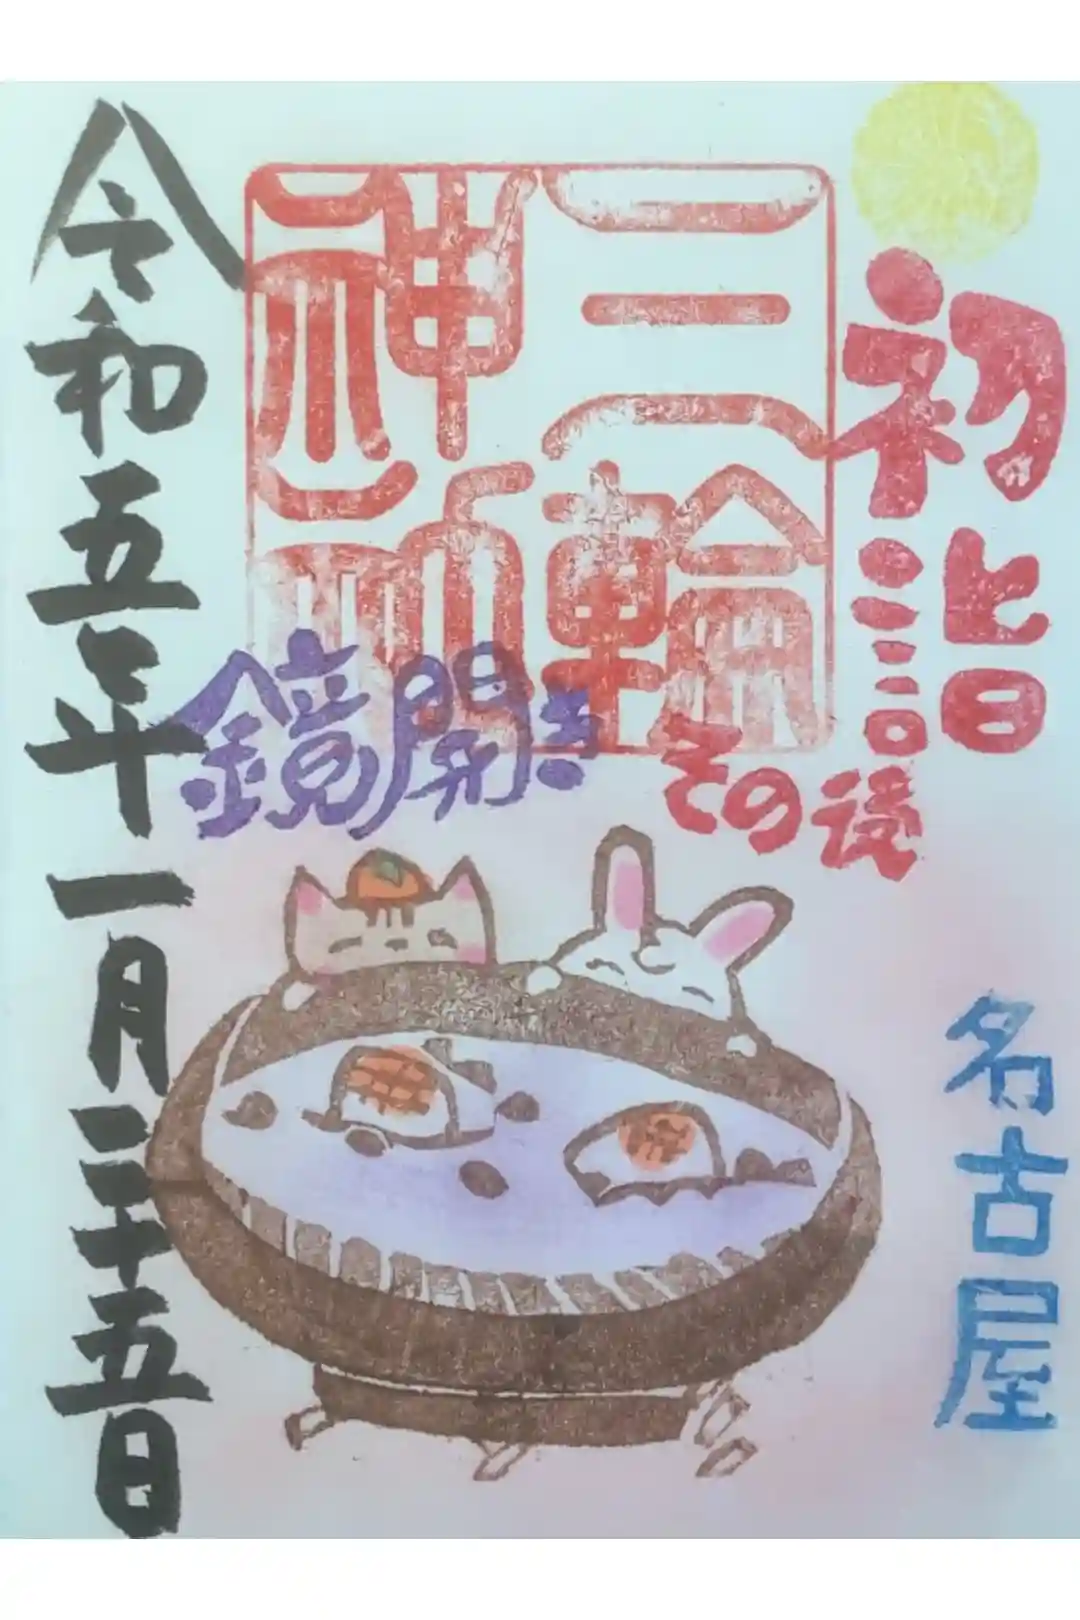 初詣
その後
名古屋
三輪
神社
鏡開き
令和五年一月二十五日